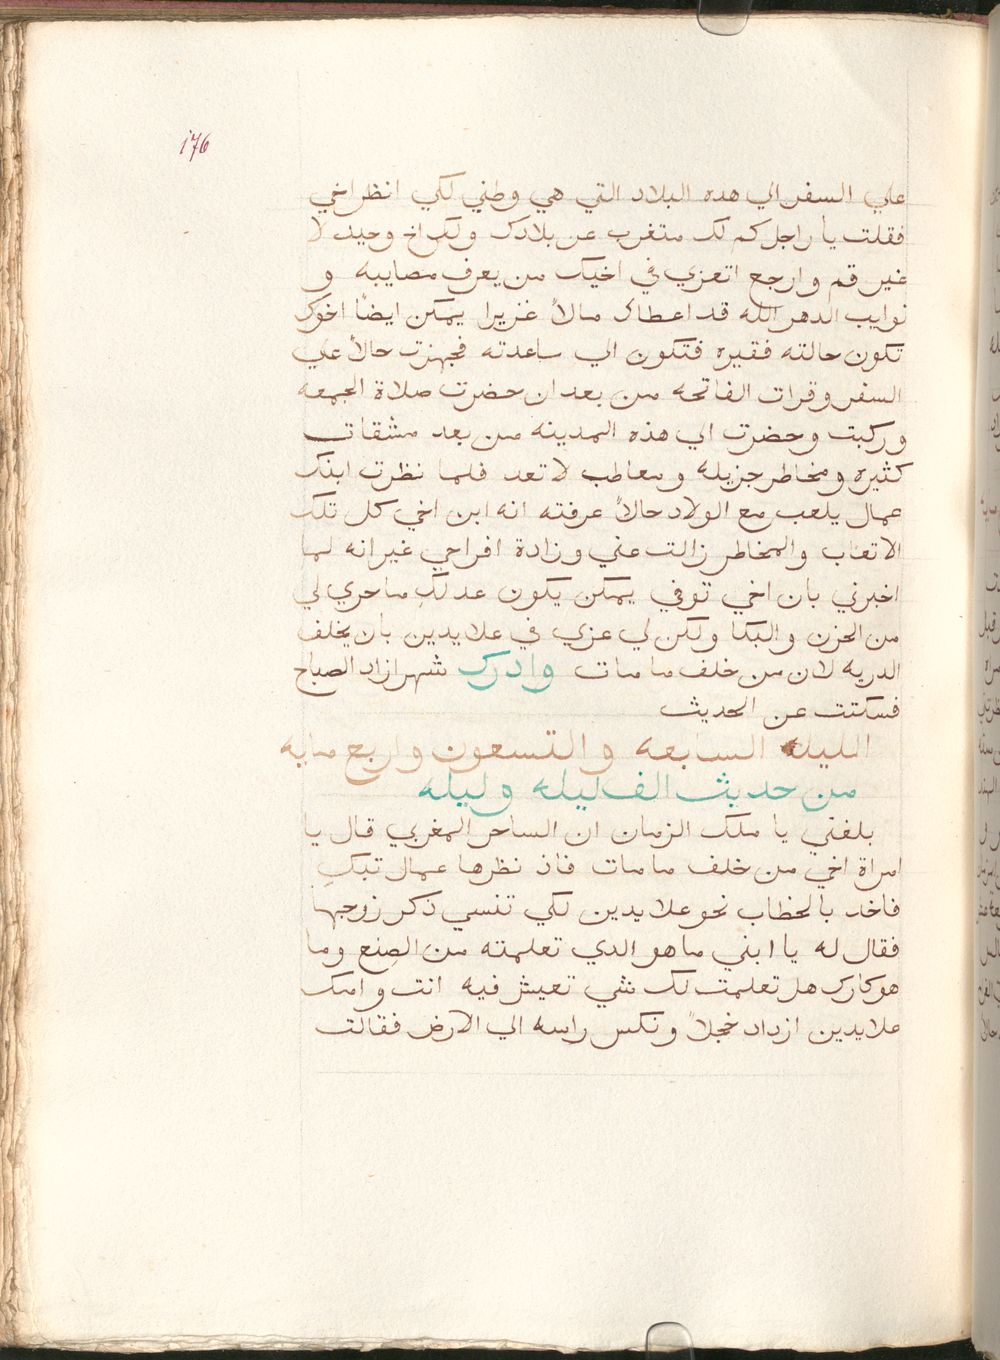 176
علي السفر الي هده البلاد التي هي وطني لكي انظر اخي
فقلت يا راجل كم لك متغرب عن بلادك ولك اخ وحيد لا
غير قم وارجع اتعزي في اخيك من يعرف مصايبه و
نوايب الدهر الله قد اعطاك مالاً غزيرا يمكن ايضاً اخوك
تكون حالته فقيره فتكون الي ساعدته فجهزت حالاً علي
السفر وقرات الفاتحه من بعد ان حضرت صلاة الجمعه
وركبت وحضرت الي هذه المدينه من بعد مشقات
كثيره ومخاطر جزيله ومعاطب لا تعد فلما نظرت ابنك
عمال يلعب مع الولاد حالاً عرفته انه ابن اخي كل تلك
الاتعاب والمخاطر زالت عني وزادة افراحي غير انه لما
اخبرني بان اخي توفي يمكن يكون عدلك ما جري لي
من الحزن والبكا ولكن لي عزي في علايدين بان يخلف
الدريه لان من خلف ما مات وادرك شهرازاد الصباح
فسكتت عن الحديث
الليله السابعه والتسعون واربع مايه
من حديث الف ليله وليله
بلغني يا ملك الزمان ان الساحر المغربي قال يا
امراة اخي من خلف ما مات فاذ نظرها عمال تبكي
فاخد بالخطاب نحو علايدين لكي تنسي ذكر زوجها
فقال له يا ابني ما هو الدي تعلمته من الصنع وما
هو كارك هل تعلمت لك شي تعيش فيه انت وامك
علايدين ازداد خجلاً ونكس راسه الي الارض فقالت